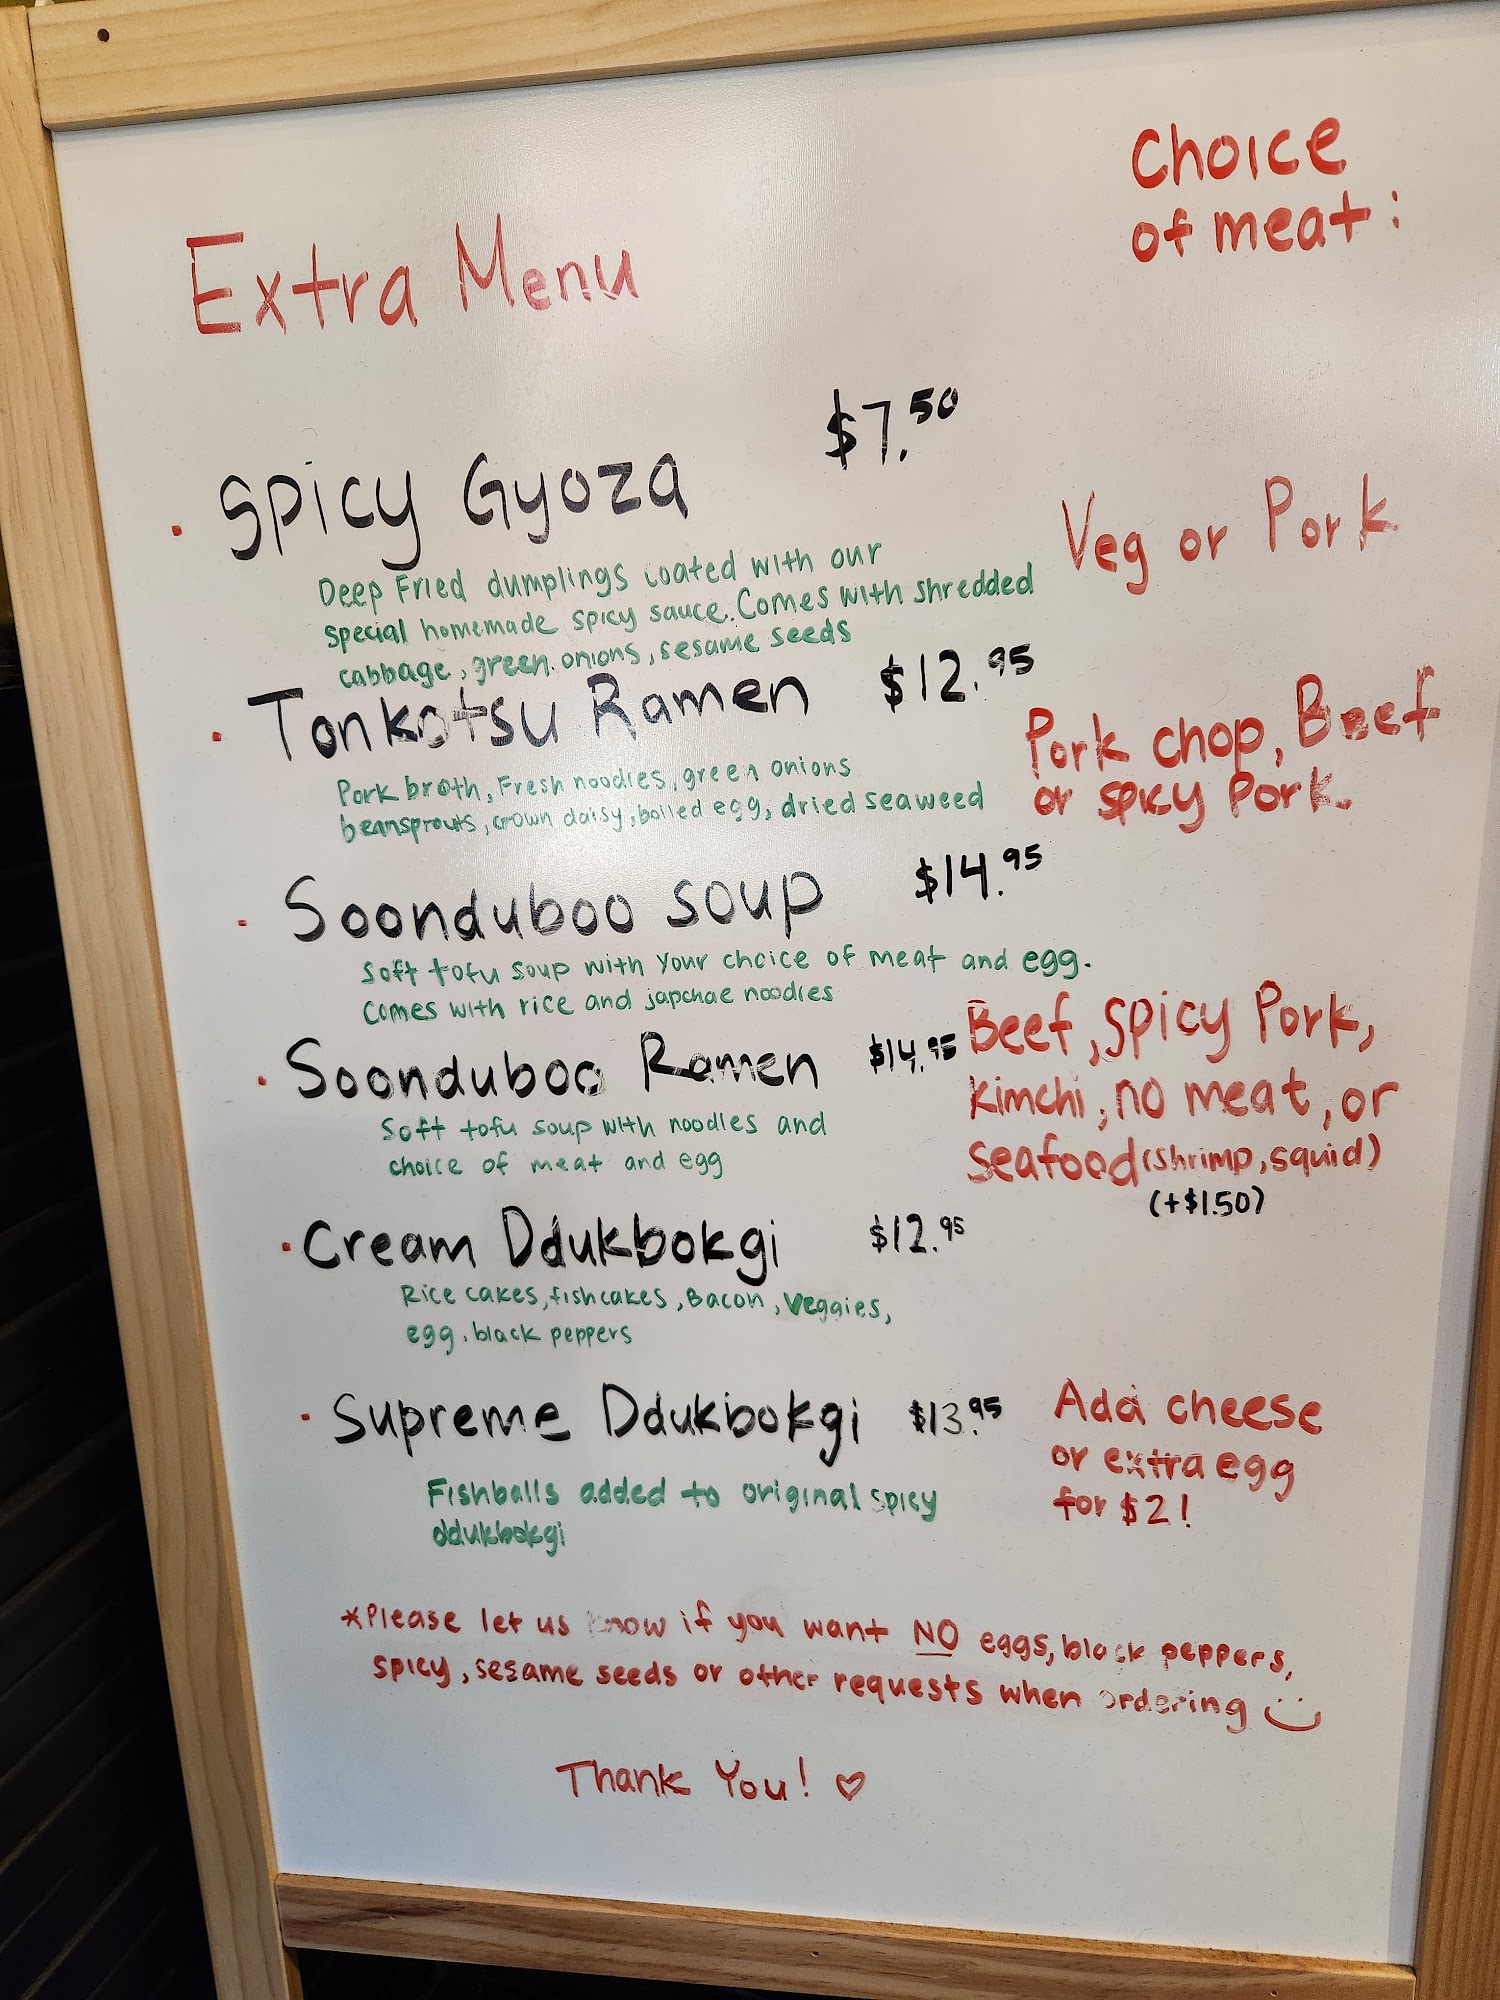 Choice
of meat:
Extra Menu
$7.50
• Spicy Gyoza
Veg or Pork
Deep Fried dumplings coated with our
special homemade spicy sauce. Comes with shredded
cabbage, green onions, sesame seeds
• Tonkotsu Ramen $12.95
Pork chop, Beef
or spicy Pork.
Pork broth, Fresh noodles, green onions
beansprouts, crown daisy, boiled egg, dried seaweed
• Soonduboo soup $14.95
Soft tofu soup with your choice of meat and egg.
Comes with rice and japchae noodles
• Soonduboo Ramen $14.95
Beef, Spicy Pork,
kimchi, no meat, or
seafood (shrimp, squid)
(+$1.50)
Soft tofu soup with noodles and
choice of meat and egg
• Cream Ddukbokgi $12.95
Rice cakes, fishcakes, Bacon, Veggies,
egg, black peppers
• Supreme Ddukbokgi $13.95
Add cheese
or extra egg
for $2!
Fishballs added to original spicy
ddukbokgi
*Please let us know if you want NO eggs, black peppers,
spicy, sesame seeds or other requests when ordering
Thank You! ♡